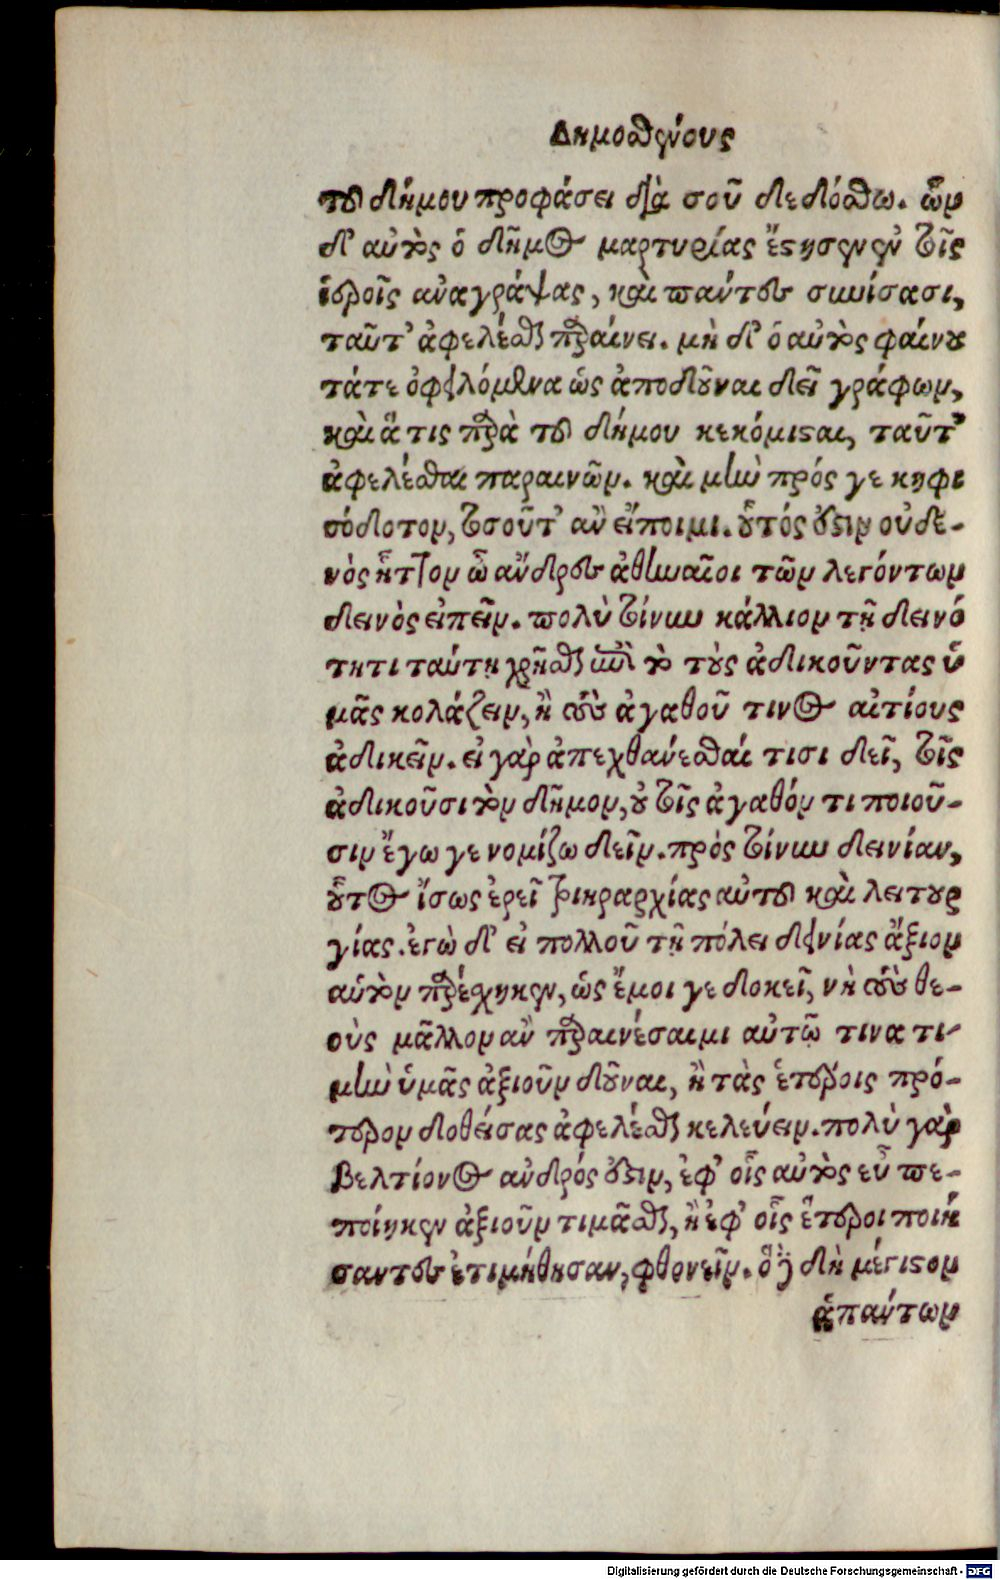 Δημοσθένους
τοῦ δήμου προφάσει διὰ σοῦ δεδόσθω. ὧν
δ' αὐτὸς ὁ δῆμος μαρτυρίας ἔστησεν ἐν τοῖς
ἱεροῖς ἀναγράψας, καὶ πάντες συνίσασι,
ταῦτ' ἀφελέσθαι παραίνει. μὴ δ' ὁ αὐτὸς φαίνου
τάτε ὀφειλόμενα ὡς ἀποδοῦναι δεῖ γράφων,
καὶ ἅ τις παρὰ τοῦ δήμου κεκόμισται, ταῦτ'
ἀφελέσθαι παραινῶν. καὶ μὴν πρός γε κηφι
σόδοτον, τοσοῦτ' ἂν εἴποιμι. οὗτός ἐστιν οὐδε-
νὸς ἧττον ὦ ἄνδρες ἀθηναῖοι τῶν λεγόντων
δεινὸς εἰπεῖν. πολὺ τοίνυν κάλλιον τῇ δεινό
τητι ταύτῃ χρῆσθαι ἐπὶ τὸ τοὺς ἀδικοῦντας ὑ
μᾶς κολάζειν, ἢ τοὺς ἀγαθοῦ τινος αἰτίους
ἀδικεῖν. εἰ γὰρ ἀπεχθάνεσθαί τισι δεῖ, τοῖς
ἀδικοῦσι τὸν δῆμον, οὐ τοῖς ἀγαθόν τι ποιοῦ-
σιν ἔγωγε νομίζω δεῖν. πρὸς τοίνυν δεινίαν,
οὗτος ἴσως ἐρεῖ τριηραρχίας αὐτοῦ καὶ λειτουρ
γίας. ἐγὼ δ' εἰ πολλοῦ τῇ πόλει δεινίας ἄξιον
αὑτὸν παρέσχηκεν, ὡς ἔμοιγε δοκεῖ, νὴ τοὺς θε-
οὺς μᾶλλον ἂν παραινέσαιμι αὐτῷ τινα τι-
μὴν ὑμᾶς ἀξιοῦν δοῦναι, ἢ τὰς ἑτέροις πρό-
τερον δοθείσας ἀφελέσθαι κελεύειν. πολὺ γὰρ
βελτίονος ἀνδρός ἐστιν, ἐφ' οἷς αὐτὸς εὖ πε-
ποίηκεν ἀξιοῦν τιμᾶσθαι, ἢ ἐφ' οἷς ἕτεροι ποιή
σαντες ἐτιμήθησαν, φθονεῖν. ὃ δὲ δὴ μέγιστον
ἁπάντων
Digitalisierung gefördert durch die Deutsche Forschungsgemeinschaft - DFG